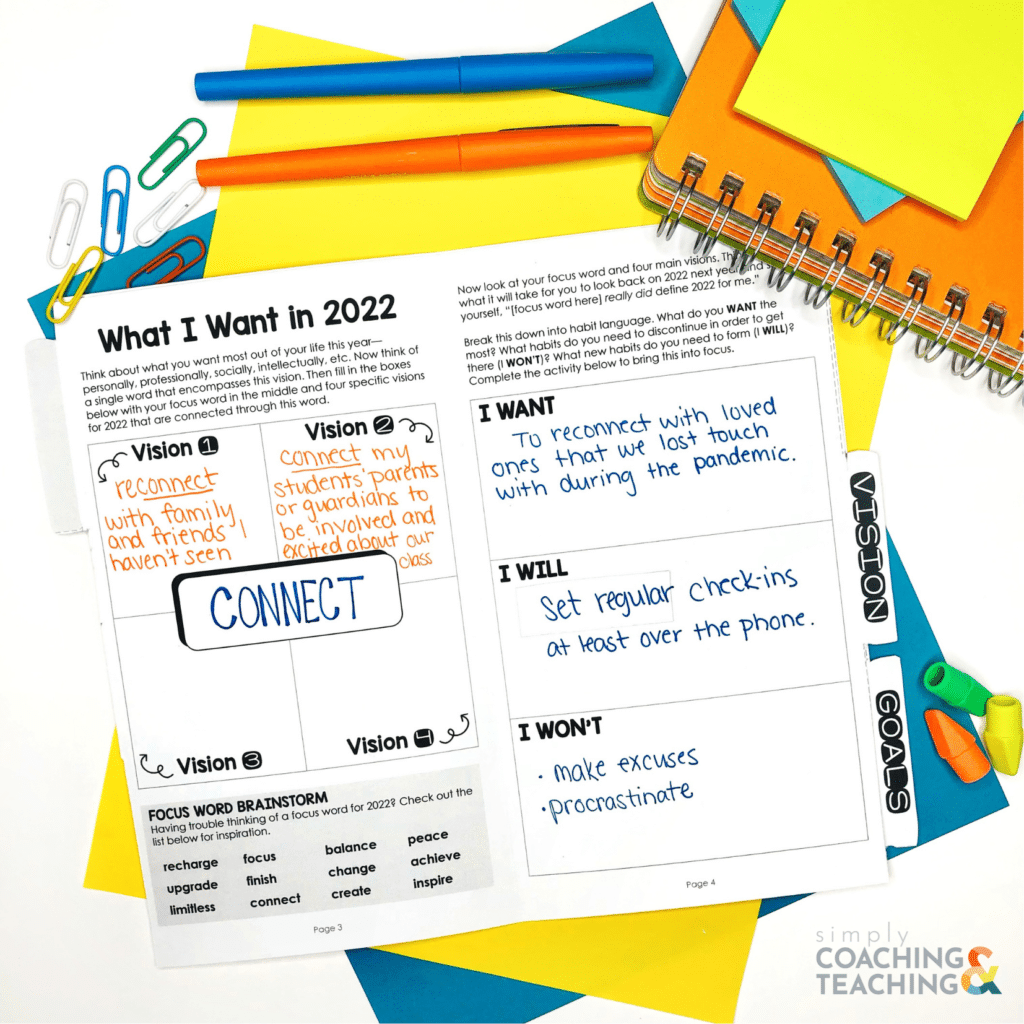 What I Want in 2022
Think about what you want most out of your life this year—
personally, professionally, socially, intellectually, etc. Now think of
a single word that encompasses this vision. Then fill in the boxes
below with your focus word in the middle and four specific visions
for 2022 that are connected through this word.
Vision 1
reconnect
with family
and friends I
haven't seen
Vision 2
connect my
students' parents
or guardians to
be involved and
excited about our
class
CONNECT
Vision 3
Vision 4
FOCUS WORD BRAINSTORM
Having trouble thinking of a focus word for 2022? Check out the
list below for inspiration.
recharge focus balance peace
upgrade finish change achieve
limitless connect create inspire
Page 3
Now look at your focus word and four main visions.
what it will take for you to look back on 2022 next year and
yourself, "[focus word here] really did define 2022 for me."
Break this down into habit language. What do you WANT the
most? What habits do you need to discontinue in order to get
there (I WON'T)? What new habits do you need to form (I WILL)?
Complete the activity below to bring this into focus.
I WANT
To reconnect with loved
ones that we lost touch
with during the pandemic.
I WILL
Set regular check-ins
at least over the phone.
I WON'T
• make excuses
• procrastinate
Page 4
VISION
GOALS
simply
COACHING &
TEACHING